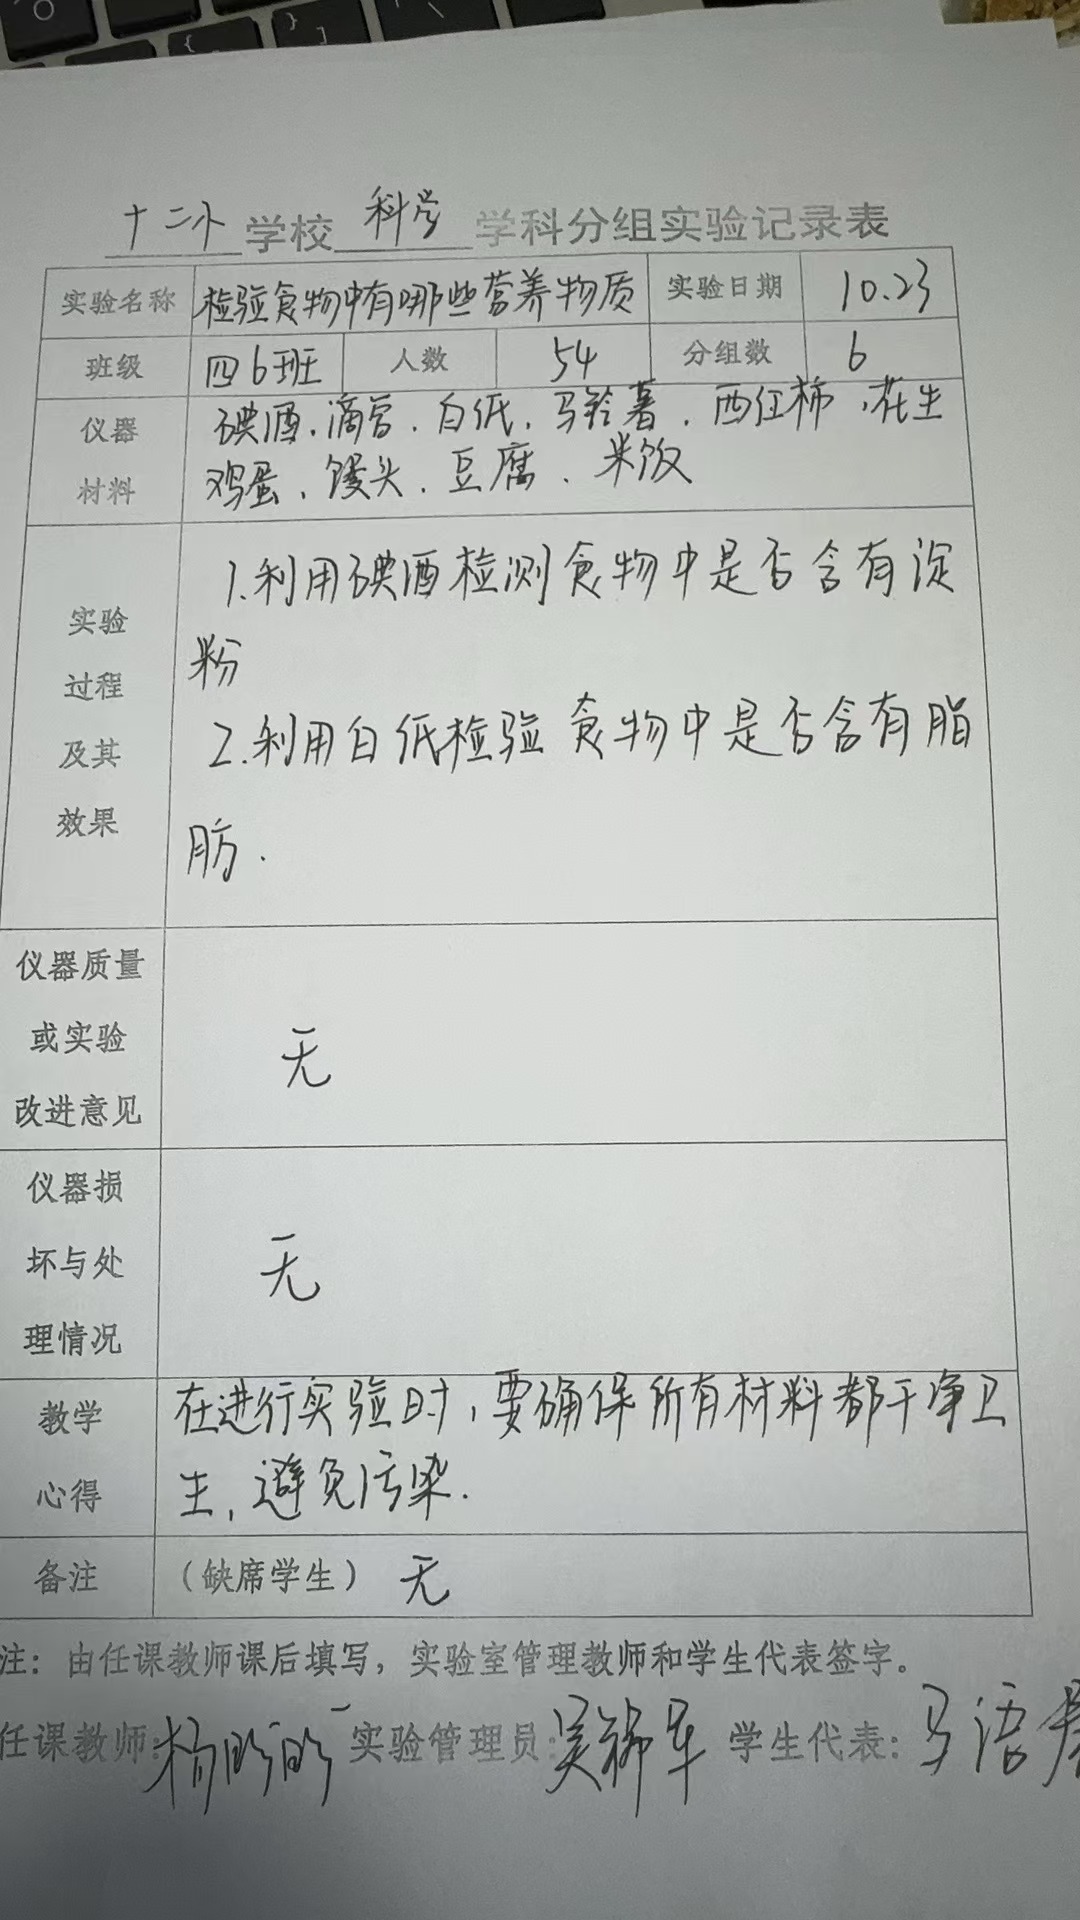 十二小学校 科学 学科分组实验记录表
实验名称 检验食物中有哪些营养物质 实验日期 10.23
班级 四6班 人数 54 分组数 6
仪器
材料
碘酒、滴管、白纸、马铃薯、西红柿、花生
鸡蛋、馒头、豆腐、米饭
实验
过程
及其
效果
1.利用碘酒检测食物中是否含有淀
粉
2.利用白纸检验食物中是否含有脂
肪.
仪器质量
或实验
改进意见
无
仪器损
坏与处
理情况
无
教学
心得
在进行实验时,要确保所有材料都干净卫
生,避免污染.
备注 (缺席学生) 无
注:由任课教师课后填写,实验室管理教师和学生代表签字。
任课教师:杨 实验管理员:吴 学生代表:马语